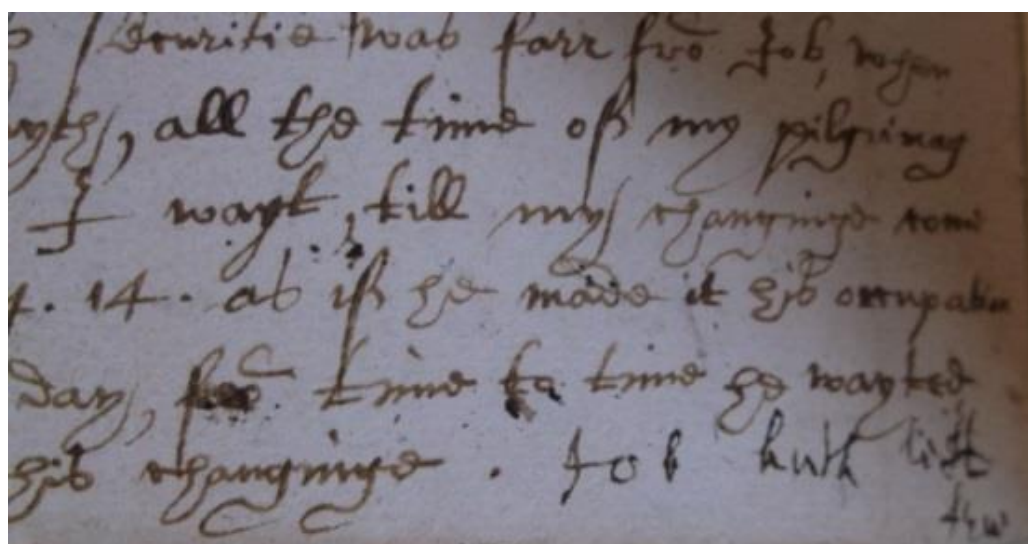 Securitie was farr frō Job, when
all the time off my pilgrimag
I wayt, till my changinge come
14. as iff he made it his occupation
day, frō time to time he wayted
his changinge. Job